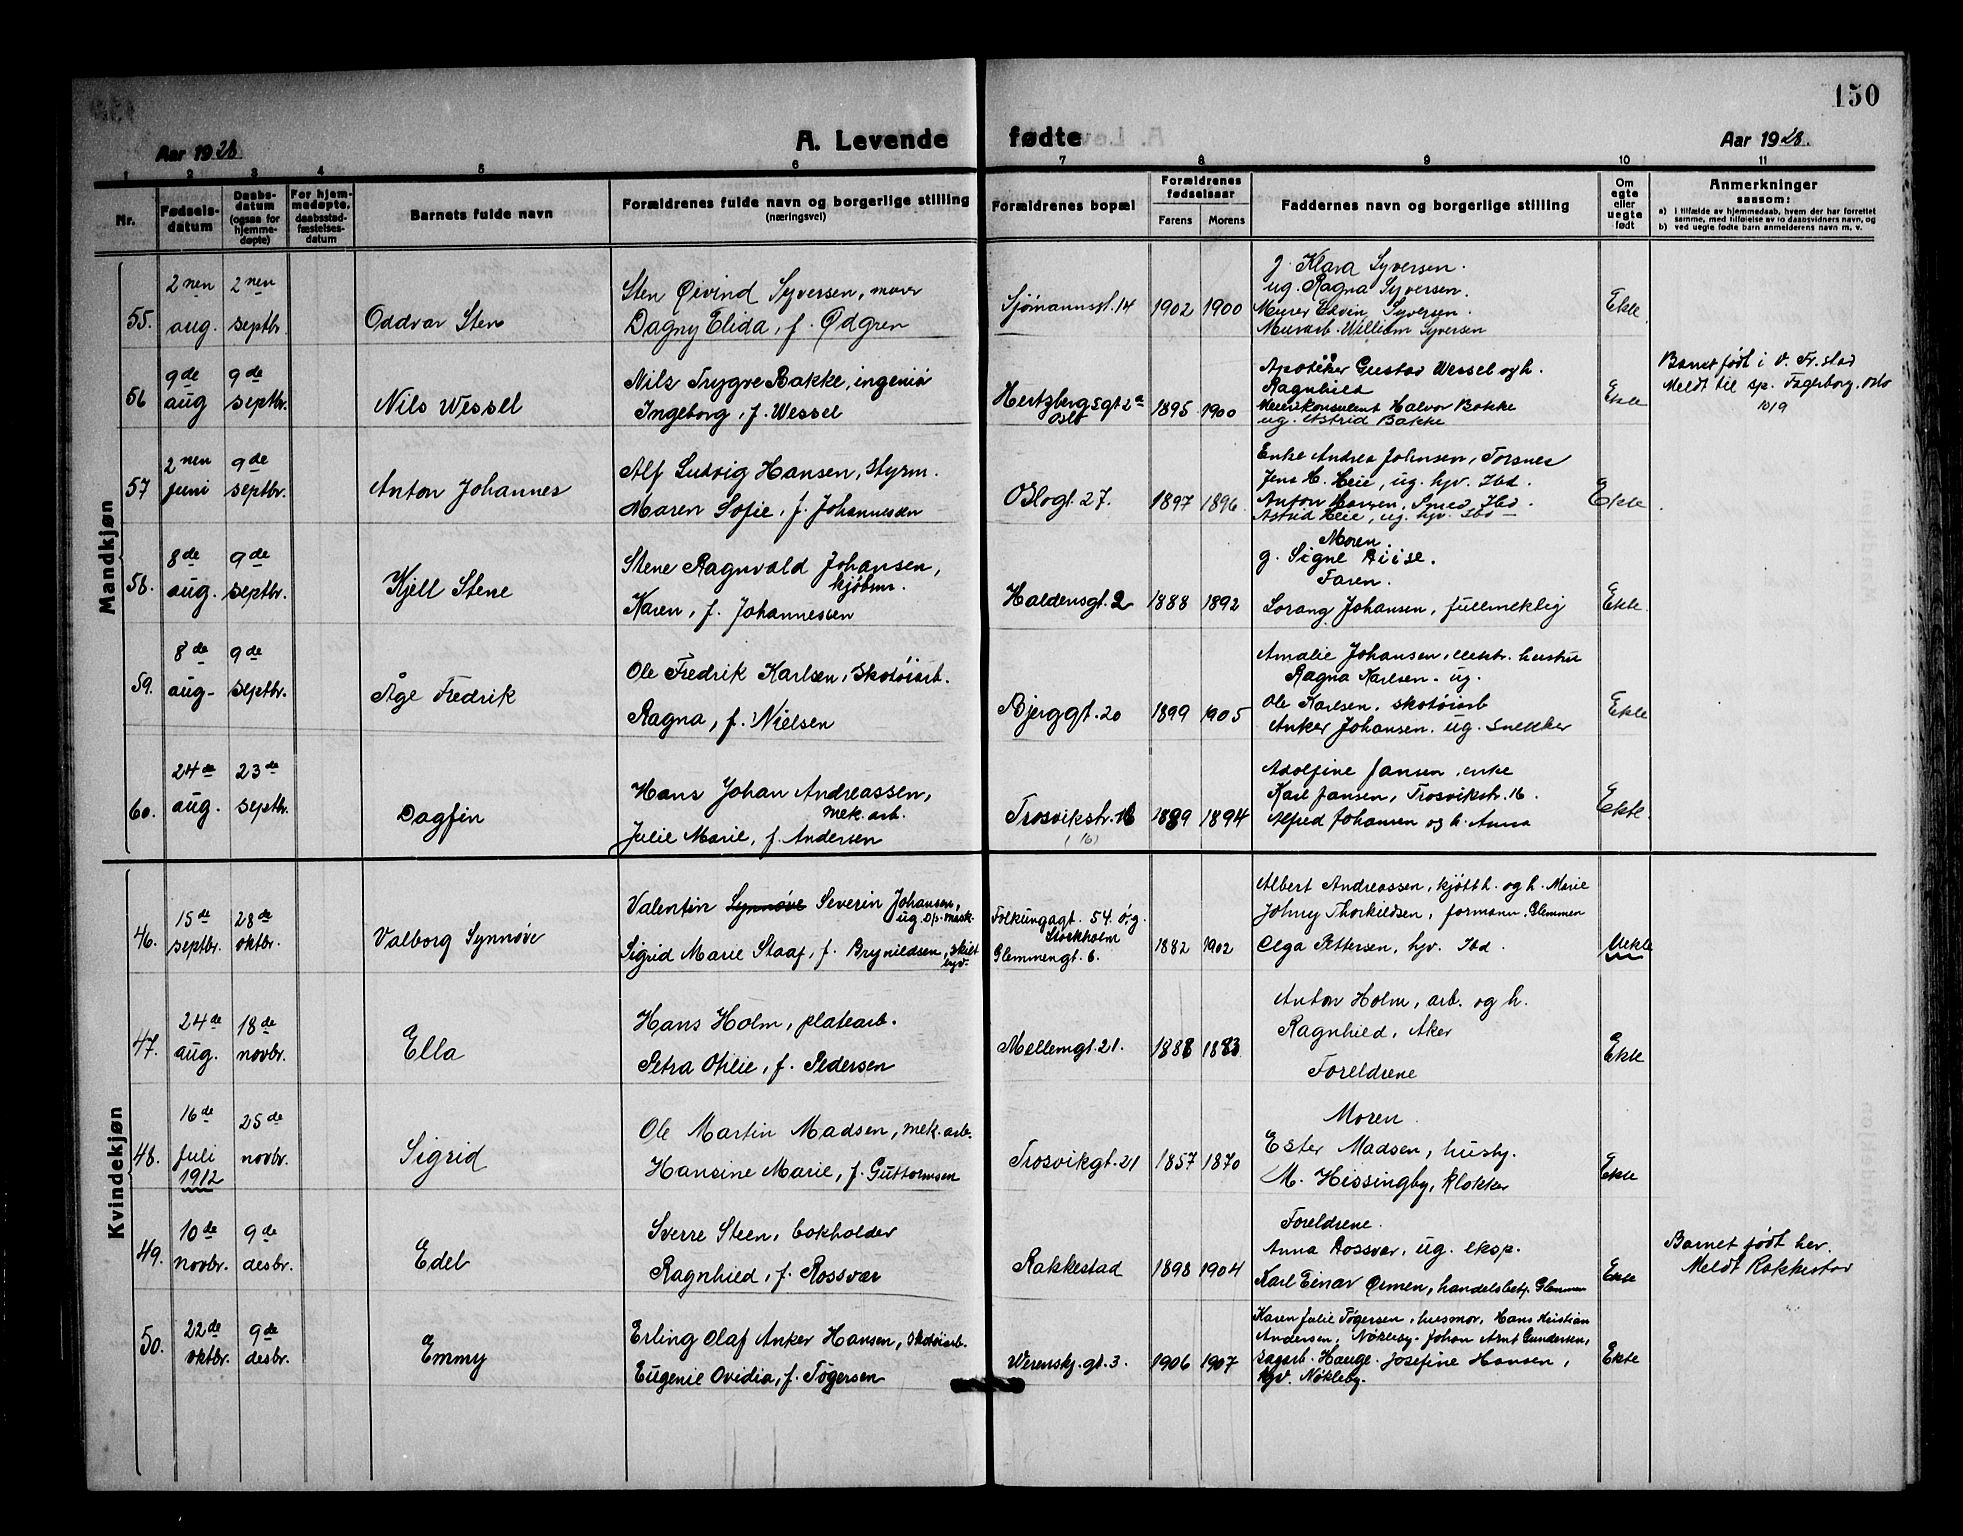 150
A. Levende fødte
Aar 1928.
Aar 1928.
1 2 3 4 5 6 7 8 9 10 11
Nr.
Fødsels-
datum
Daabs-
datum
(ogsaa for
hjemme-
døpte)
For hjem-
medøpte,
daabsstad-
fæstelses-
datum
Barnets fulde navn
Forældrenes fulde navn og borgerlige stilling
(næringsvei)
Forældrenes bopæl
Forældrenes
fødselsaar
Farens Morens
Faddernes navn og borgerlige stilling
Om
egte
eller
uegte
født
Anmerkninger
saasom:
a) i tilfælde av hjemmedaab, hvem der har forrettet
samme, med tilføielse av to daabsvidners navn, og
b) ved uegte fødte barn anmelderens navn m. v.
Mandkjøn
55. 2nen aug. 2nen septbr. Oddvar Sten
Sten Øivind Syversen, murer
Dagny Elida, f. Ødgren
Sjømannsgt. 14 1902 1900
g. Klara Syversen.
ug. Ragna Syversen.
Murer Edvin Syversen.
Murarb. William Syversen
Ekte.
56 9de aug 9de septbr. Nils Wessel
Nils Trygve Bakke, ingeniør
Ingeborg, f. Wessel
Hertzbergsgt 2a
Oslo
1895 1900
Apoteker Gustav Wessel og h.
Ragnhild
Meierikonsulent Halvor Bakke
ug. Astrid Bakke
Ekte
Barnet født i V. Fr.stad
Meldt til sp. Fagerborg, Oslo
10/9
57 2nen juni 9de septbr. Anton Johannes
Alf Ludvig Hansen, styrm.
Maren Sofie, f. Johannesen
Oslogt. 27. 1897 1896
Enke Andrea Johnsen, Torsnes
Jens H. Heie, ug. hjv. Ibd.
Anton Hansen, Smed Ibd.
Astrid Heie, ug. hjv. Ibd
Ekte
58. 8de aug. 9de septbr. Kjell Stene
Stene Ragnvald Johansen,
kjøbm.
Karen, f. Johannessen
Haldensgt. 2 1888 1892
Moren.
g. Signe Riise.
Faren.
Lorang Johansen, fullmektig
Ekte.
59. 8de aug- 9de septbr. Åge Fredrik
Ole Fredrik Karlsen, Skotøiarb.
Ragna, f. Nielsen
Bjerggt. 20 1899 1905
Amalie Johansen, hustru
Ragna Karlsen. ug.
Ole Karlsen, skotøiarb
Anker Johansen. ug. snekker
Ekte
60. 24de aug. 23de septbr. Dagfin
Hans Johan Andreassen,
mek. arb.
Julie Marie, f. Andersen
Trosvikstr. 16
(16)
1889 1894
Adolfine Jansen, enke
Karl Jansen, Trosvikstr. 16.
Alfred Johansen og h. Anna
Ekte.
Kvindekjøn
46. 15de septbr. 28de oktbr. Valborg Synnøve
Valentin Synnøve Severin Johansen,
ug. op. mask.
Sigrid Marie Staaf, f. Brynildsen, skilt
hjv.
Folkungagt. 54. ö.g.
Stockholm
Glemmengt. 6.
1882 1902
Albert Andreassen, kjøtth. og h. Marie
Johny Thorkildsen, formann. Glemmen
Olga Pettersen, hjv. Ibd.
Uekte
47. 24de aug. 18de novbr. Ella
Hans Holm, platearb.
Petra Otilie, f. Pedersen
Mellemgt. 21. 1888 1883.
Anton Holm, arb. og h.
Ragnhild, Aker
Foreldrene
Ekte
48. 16de Juli 1912 25de novbr. Sigrid
Ole Martin Madsen, mek. arb.
Hansine Marie, f. Guttormsen
Trosvikgt. 21 1857 1870
Moren.
Ester Madsen, husby.
M. Hissingby, klokker
Ekte.
49. 10de novbr. 9de desbr. Edel
Sverre Steen, bokholder
Ragnhild, f. Rossvær
Rakkestad 1898 1904
Foreldrene.
Anna Rossvær, ug. eksp.
Karl Einar Ørmen, handelsbetj. Glemmen
Ekte
Barnet født her.
Meldt Rakkestad
50. 22de oktbr. 9de desbr. Emmy
Erling Olaf Anker Hansen, skotøiarb.
Eugenie Ovidia, f. Tøgersen
Werenskj. gt. 3. 1906 1907
Karen Julie Tøgersen, husmor, Hans Kristian
Andersen, Nøkleby. Johan Arnt Gundersen,
sagarb. Hauge. Josefine Hansen,
hjv. Nøkleby.
Ekte